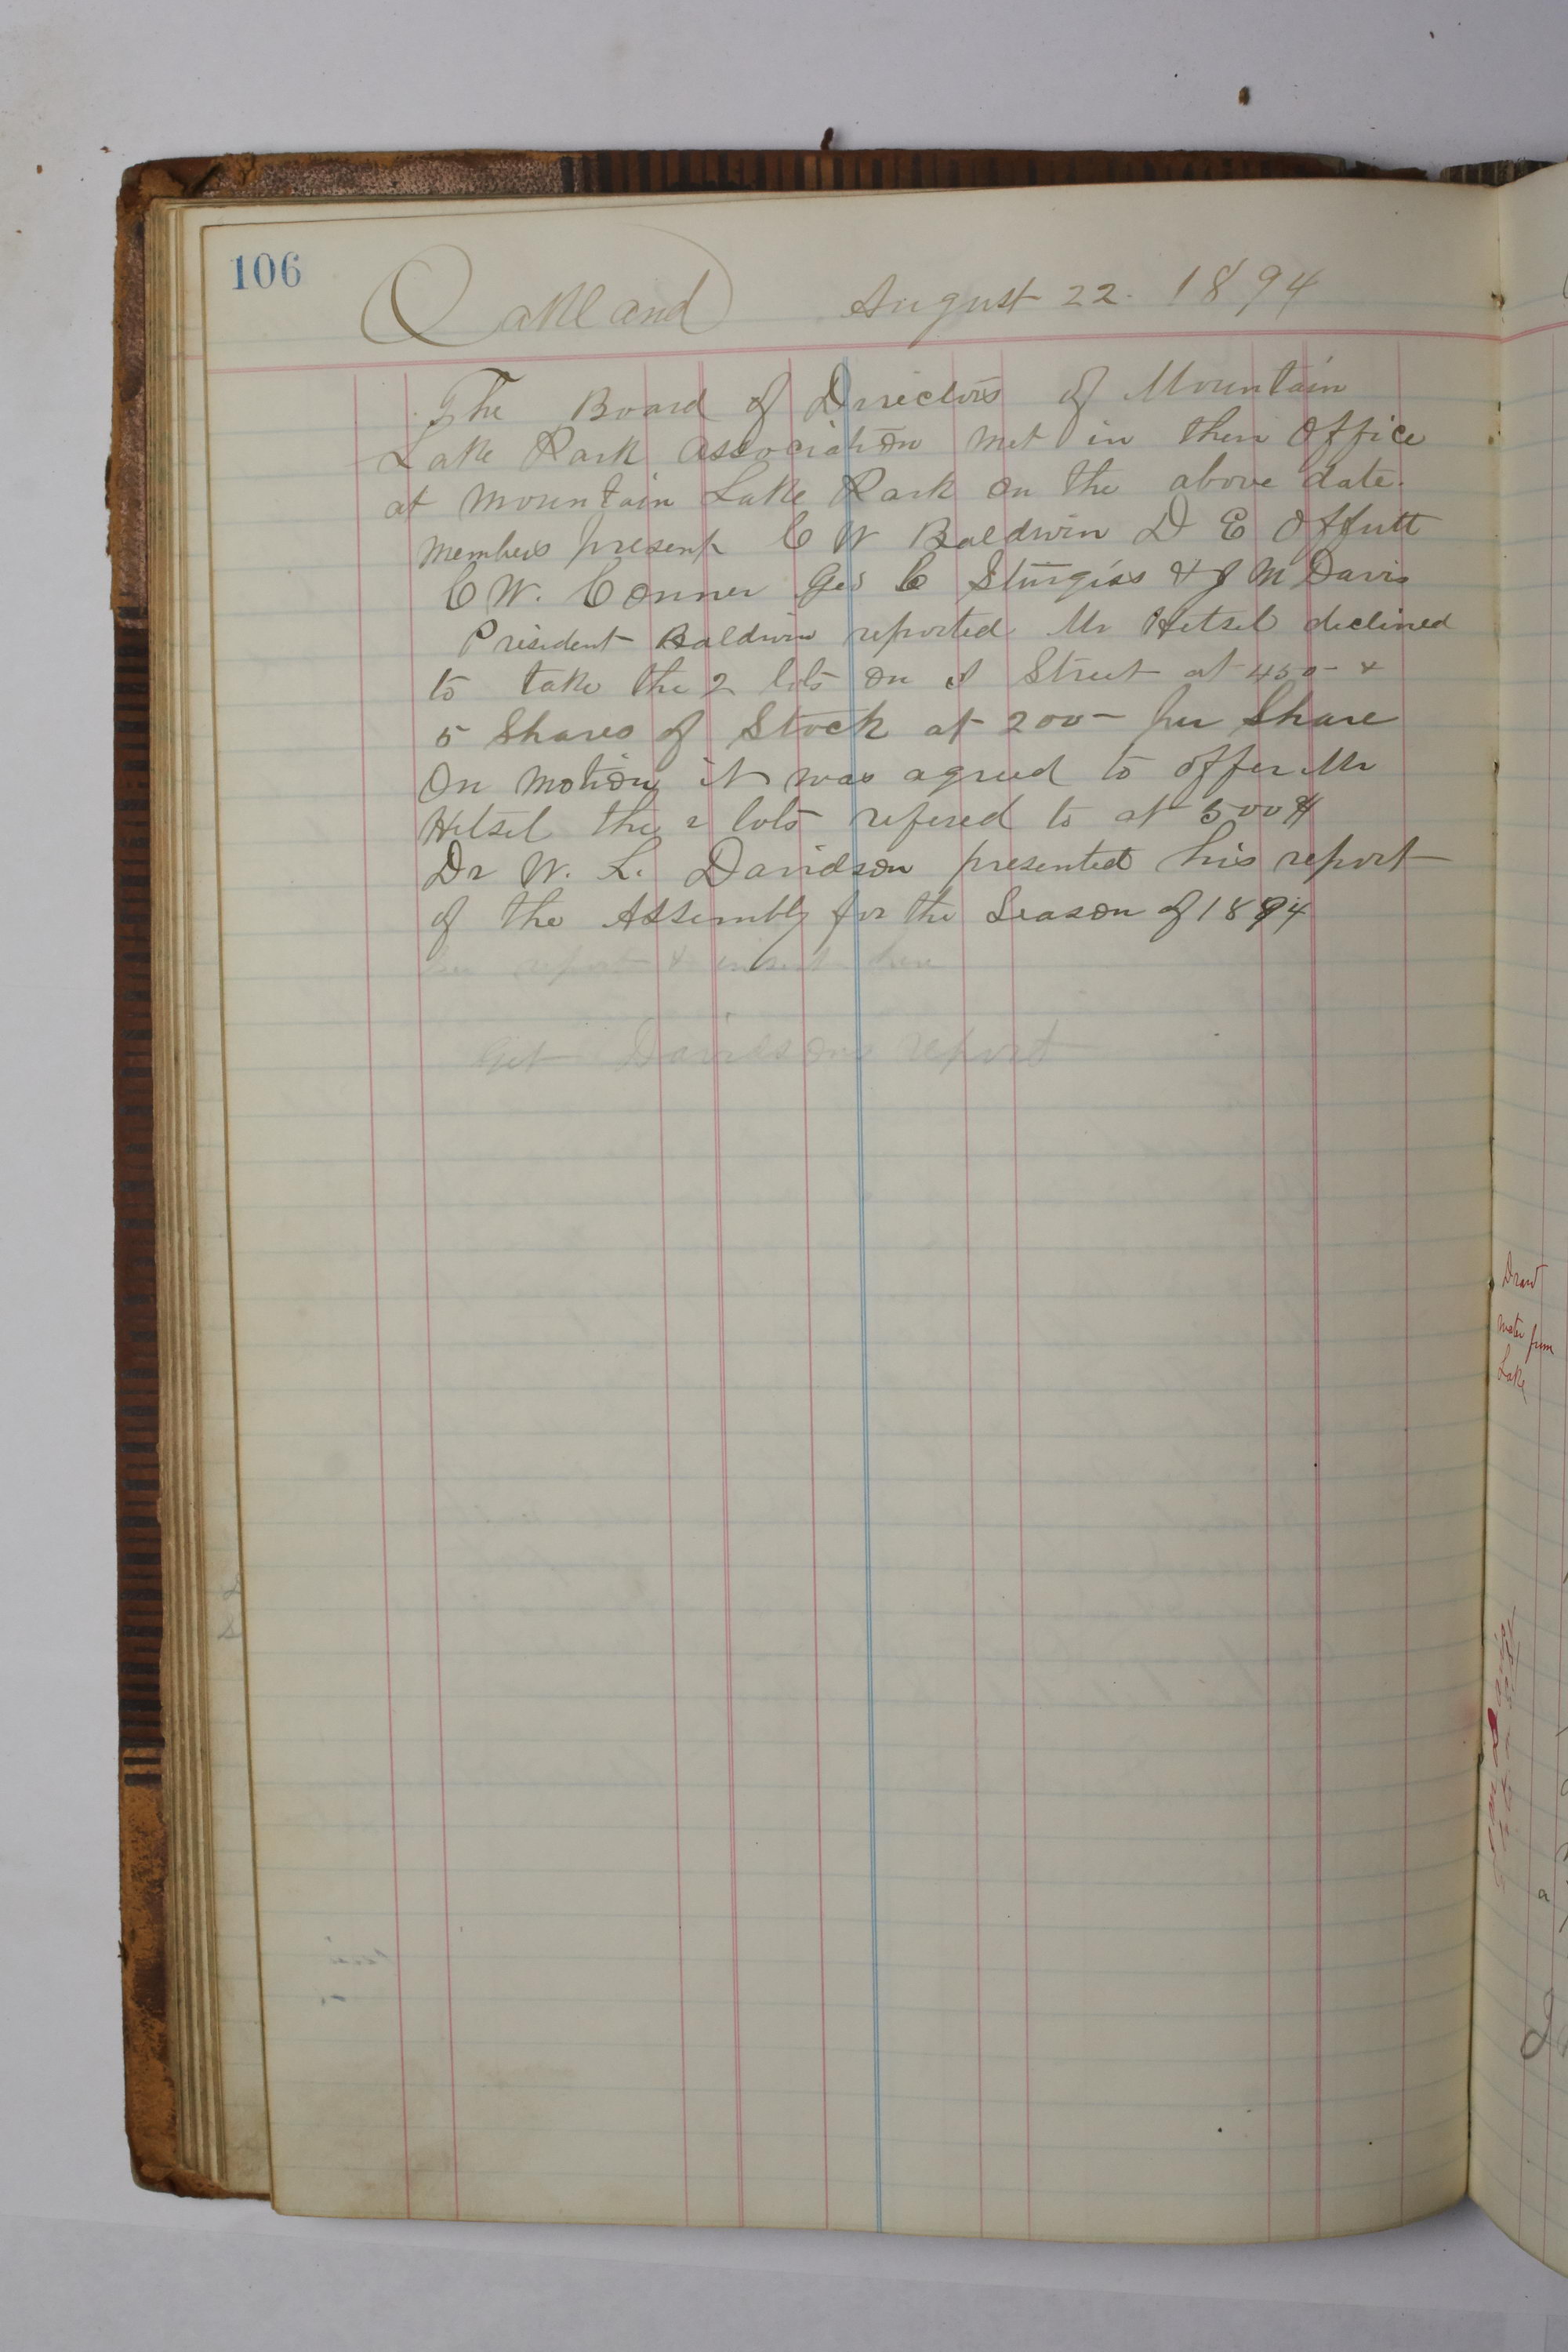 106
Oakland August 22. 1894
The Board of Directors of Mountain
Lake Park Association met in their Office
at Mountain Lake Park on the above date.
Members present C W Baldwin D E Offutt
C W. Conner Geo C Sturgiss & J M Davis
President Baldwin reported Mr Hetsel declined
to take the 2 lots on Street at 450- &
5 Shares of Stock at 200- per Share
On Motion it was agreed to offer Mr
Hetsel the 2 lots refered to at 500$
Dr W. L. Davidson presented his report
of the Assembly for the Season of 1894
see report & insert here
Get Davidsons report
Draw
water from
Lake